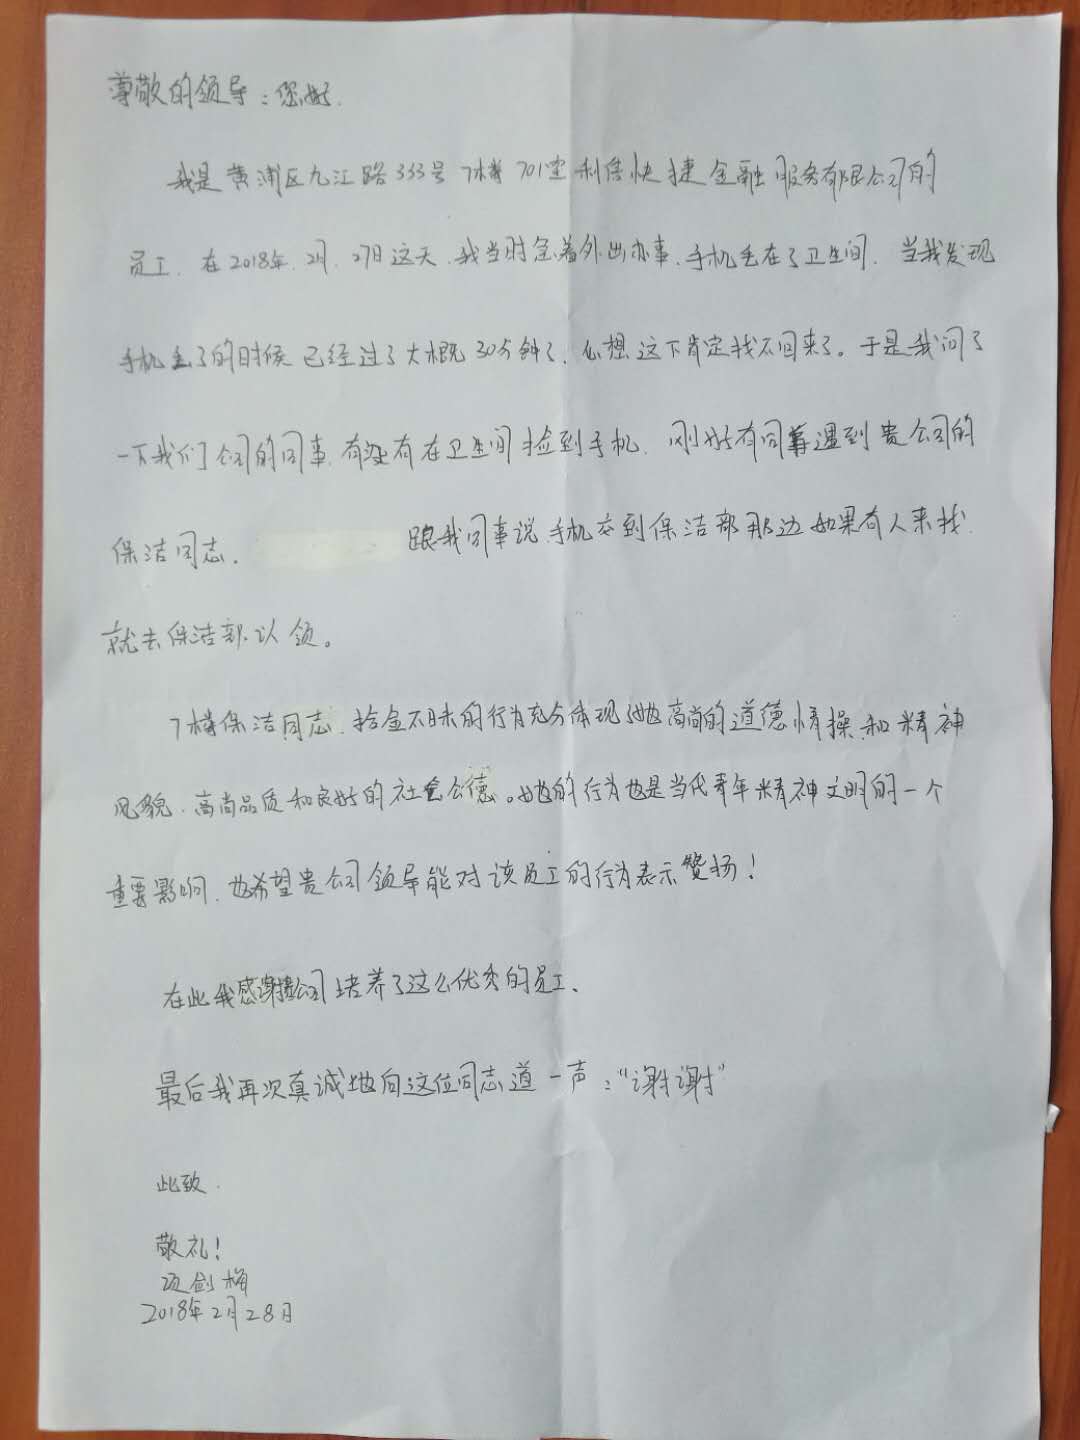 尊敬的领导：您好.
我是黄浦区九江路333号7楼701室利信快捷金融服务有限公司的
员工.在2018年.2月.27日这天.我当时急着外出办事.手机丢在了卫生间.当我发现
手机丢了的时候已经过了大概30分钟了.心想这下肯定找不回来了。于是我问了
一下我们公司的同事.有没有在卫生间捡到手机.刚好有同事遇到贵公司的
保洁同志.跟我同事说.手机交到保洁部那边如果有人来找.
就去保洁部认领。
7楼保洁同志.拾金不昧的行为充分体现她高尚的道德情操和精神
风貌.高尚品质和良好的社会公德。她的行为也是当代青年精神文明的一个
重要影响.也希望贵公司领导能对该员工的行为表示赞扬！
在此我感谢贵公司培养了这么优秀的员工.
最后我再次真诚地向这位同志道一声：“谢谢”
此致.
敬礼！
项剑梅
2018年2月28日